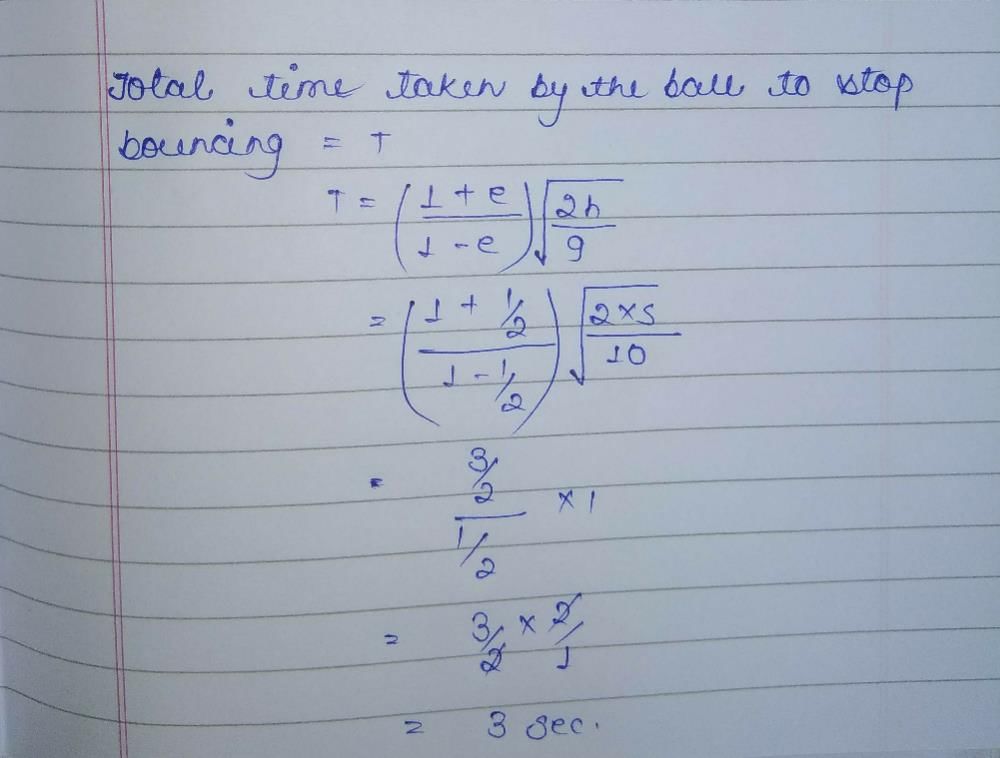 Total time taken by the ball to stop
bouncing = T
T = ((1 + e)/(1 - e)) √(2h/g)
= ((1 + 1/2)/(1 - 1/2)) √((2×5)/10)
= (3/2)/(1/2) × 1
= 3/2 × 2/1
= 3 sec.